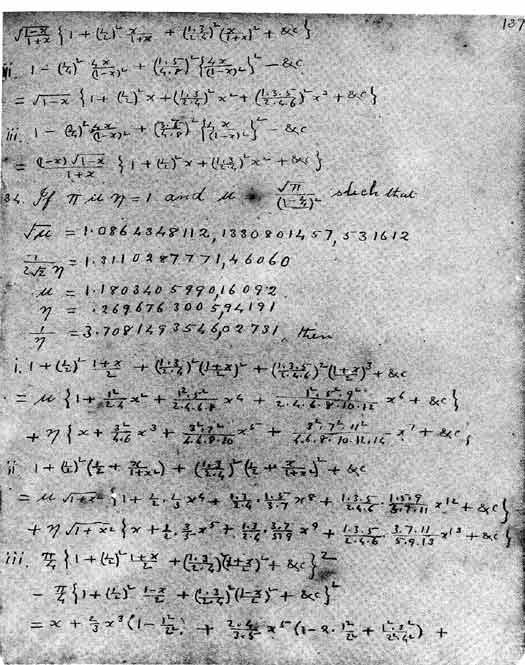 137
√(1-x)/(1+x) {1 + (1/2)² x/(1+x) + (1·3/2·4)² (x/(1+x))² + &c}
ii. 1 - (1/4)² 4x/(1-x)² + (1·5/4·8)² {4x/(1-x)²}² - &c
= √1-x {1 + (1/2)² x + (1·3/2·4)² x² + (1·3·5/2·4·6)² x³ + &c}
iii. 1 - (3/4)² 4x/(1-x)² + &c
= (1-x)√1-x/(1+x) {1 + (1/2)² x + (1·3/2·4)² x² + &c}
34. If π μ η = 1 and μ √π/(1-1/4)² such that
√μ = 1.0864348112,1330801457,531612
1/(2√2 η) = 1.3110287771,46060
μ = 1.1803405990,16092
η = .2696763005,94191
1/η = 3.7081493546,02731, then
i. 1 + (1/2)² (1+x)/2 + (1·3/2·4)² ((1+x)/2)² + (1·3·5/2·4·6)² ((1+x)/2)³ + &c
= μ {1 + 1²/2·4 x² + 1²·5²/2·4·6·8 x⁴ + 1²·5²·9²/2·4·6·8·10·12 x⁶ + &c}
+ η {x + 3²/4·6 x³ + 3²·7²/4·6·8·10 x⁵ + 3²·7²·11²/4·6·8·10·12·14 x⁷ + &c}
ii 1 + (1/2)² (1/2 + x/(1+x²)) + (1·3/2·4)² (1/2 + x/(1+x²))² + &c
= μ √1+x² {1 + 1/2 · 1/3 x⁴ + 1·3/2·4 · 1·5/3·7 x⁸ + 1·3·5/2·4·6 · 1·5·9/3·7·11 x¹² + &c}
+ η √1+x² {x + 1/2 · 3/5 x⁵ + 1·3/2·4 · 3·7/5·9 x⁹ + 1·3·5/2·4·6 · 3·7·11/5·9·13 x¹³ + &c}
iii. π/4 {1 + (1/2)² (1+x)/2 + (1·3/2·4)² ((1+x)/2)² + &c}²
- π/4 {1 + (1/2)² (1-x)/2 + (1·3/2·4)² ((1-x)/2)² + &c}²
= x + 2/3 x³ (1 - 1²/2²) + 2·4/3·5 x⁵ (1 - 2· 1²/2² + 1²·3²/2²·4²) +